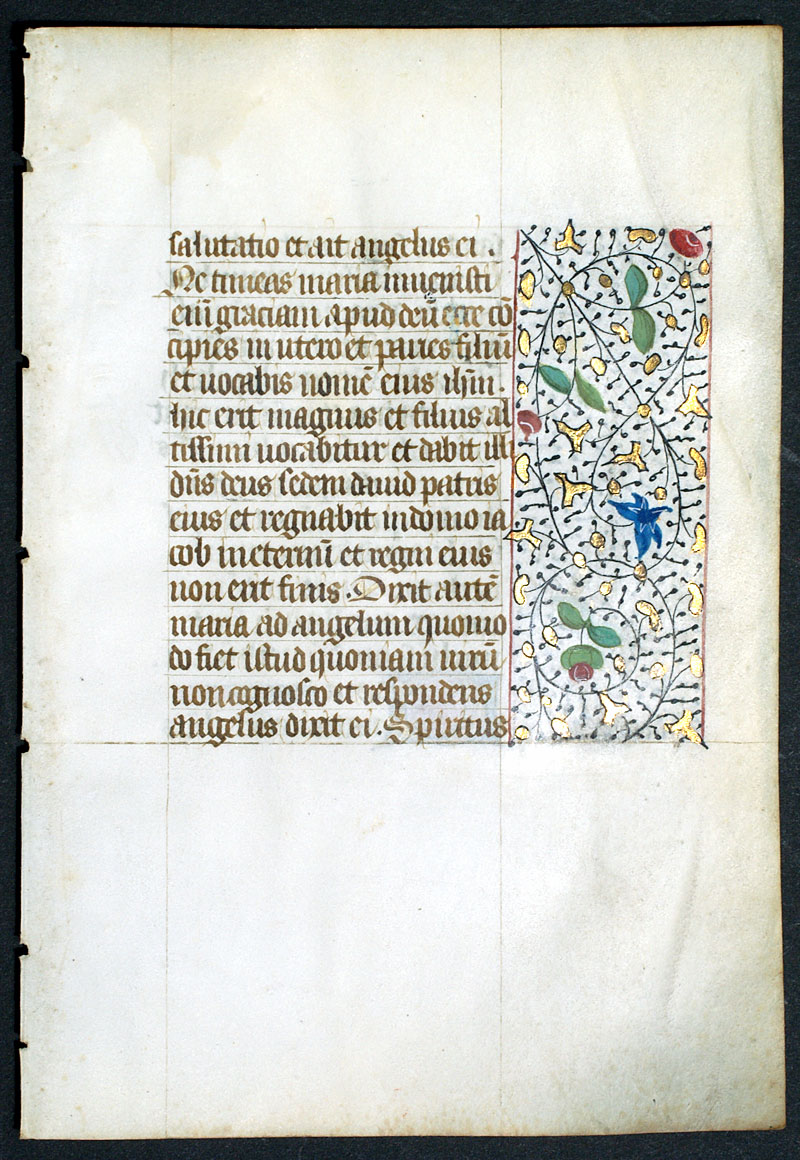 salutatio et ait angelus ei .
Ne timeas maria inuenisti
eni͂ graciam apud deu͂ ecce co͂
cipies in utero et paries filiu͂
et uocabis nome͂ eius ihm̅ .
hic erit magnus et filius al
tissimi uocabitur et dabit illi
dn̅s deus sedem dauid patris
eius et regnabit in domo ia
cob in eternu͂ et regni eius
non erit finis . Dixit aute͂
maria ad angelum quomo
do fiet istud quoniam uiru͂
non cognosco et respondens
angelus dixit ei . Spiritus